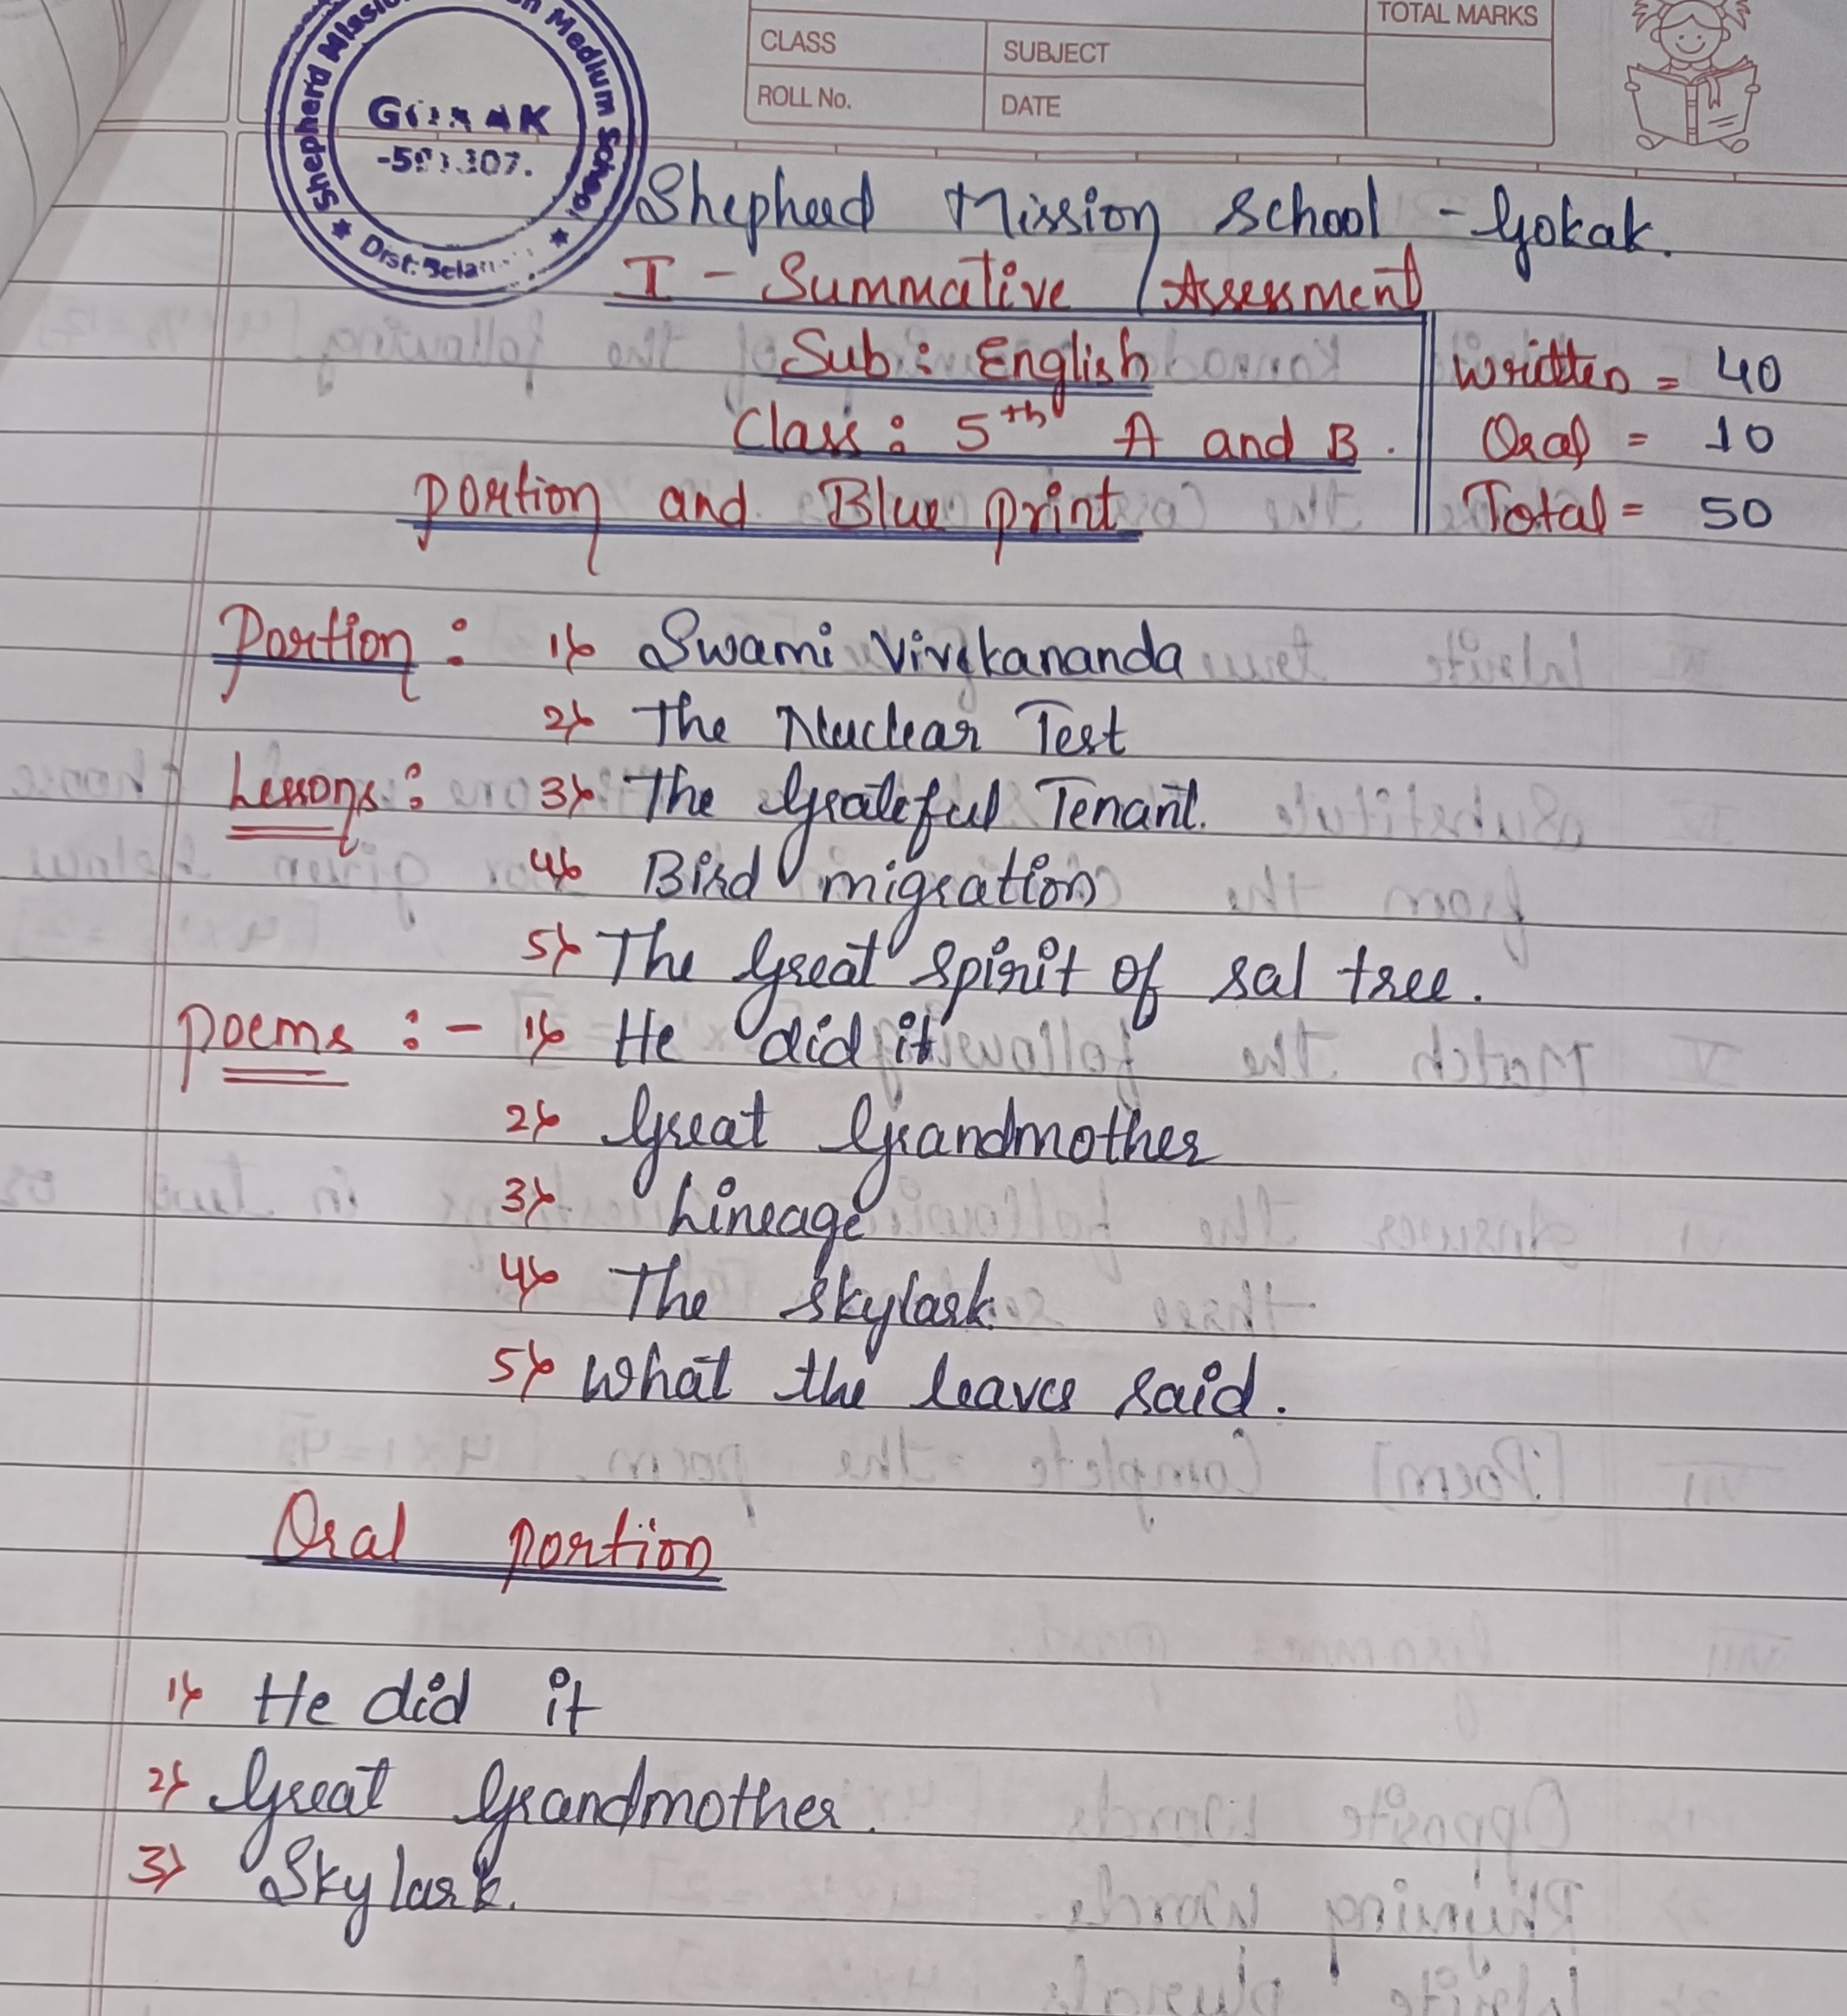 Shepherd Mission Medium School
GOKAK
-591307.
Dist: Bela
TOTAL MARKS
CLASS
SUBJECT
ROLL No.
DATE
Shepherd Mission School - Gokak.
I - Summative Assessment
Sub : English
Written = 40
Class : 5th A and B.
Oral = 10
Portion and Blue print
Total = 50
Portion : 1) Swami Vivekananda
2) The Nuclear Test
Lessons : 3) The Grateful Tenant.
4) Bird migration
5) The Great spirit of sal tree.
Poems :- 1) He did it
2) Great Grandmother
3) Lineage
4) The Skylark
5) What the leaves said.
Oral portion
1) He did it
2) Great Grandmother.
3) Skylark.